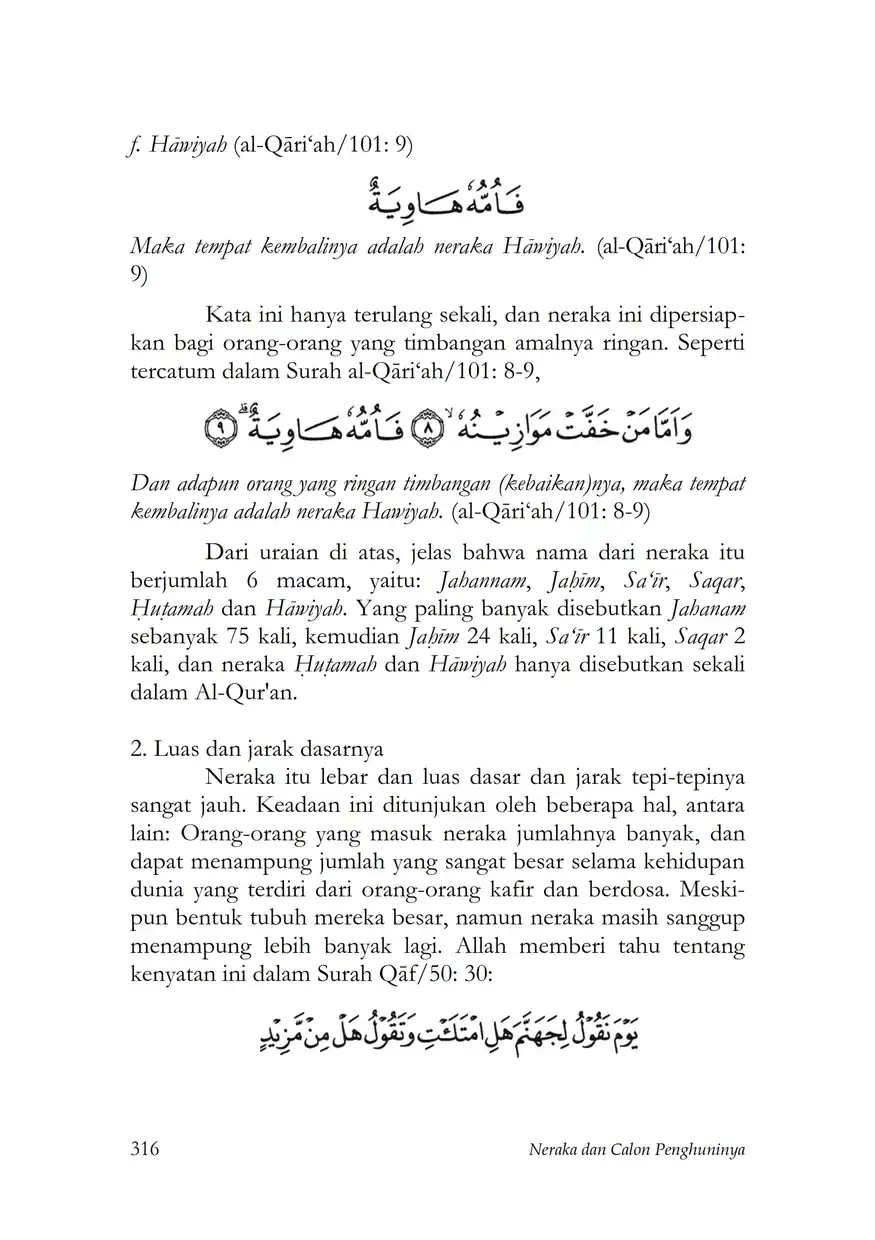 f. Hāwiyah (al-Qāri‘ah/101: 9)
فَاُمُّهٗ هَاوِيَةٌ ۗ
Maka tempat kembalinya adalah neraka Hāwiyah. (al-Qāri‘ah/101:
9)
Kata ini hanya terulang sekali, dan neraka ini dipersiap-
kan bagi orang-orang yang timbangan amalnya ringan. Seperti
tercatum dalam Surah al-Qāri‘ah/101: 8-9,
وَاَمَّا مَنْ خَفَّتْ مَوَازِيْنُهٗ ۙ ﴿٨﴾ فَاُمُّهٗ هَاوِيَةٌ ۗ ﴿٩﴾
Dan adapun orang yang ringan timbangan (kebaikan)nya, maka tempat
kembalinya adalah neraka Hawiyah. (al-Qāri‘ah/101: 8-9)
Dari uraian di atas, jelas bahwa nama dari neraka itu
berjumlah 6 macam, yaitu: Jahannam, Jaḥīm, Sa‘īr, Saqar,
Ḥuṭamah dan Hāwiyah. Yang paling banyak disebutkan Jahanam
sebanyak 75 kali, kemudian Jaḥīm 24 kali, Sa‘īr 11 kali, Saqar 2
kali, dan neraka Ḥuṭamah dan Hāwiyah hanya disebutkan sekali
dalam Al-Qur'an.
2. Luas dan jarak dasarnya
Neraka itu lebar dan luas dasar dan jarak tepi-tepinya
sangat jauh. Keadaan ini ditunjukan oleh beberapa hal, antara
lain: Orang-orang yang masuk neraka jumlahnya banyak, dan
dapat menampung jumlah yang sangat besar selama kehidupan
dunia yang terdiri dari orang-orang kafir dan berdosa. Meski-
pun bentuk tubuh mereka besar, namun neraka masih sanggup
menampung lebih banyak lagi. Allah memberi tahu tentang
kenyatan ini dalam Surah Qāf/50: 30:
يَوْمَ نَقُوْلُ لِجَهَنَّمَ هَلِ امْتَلَـْٔتِ وَتَقُوْلُ هَلْ مِنْ مَّزِيْدٍ
316 Neraka dan Calon Penghuninya